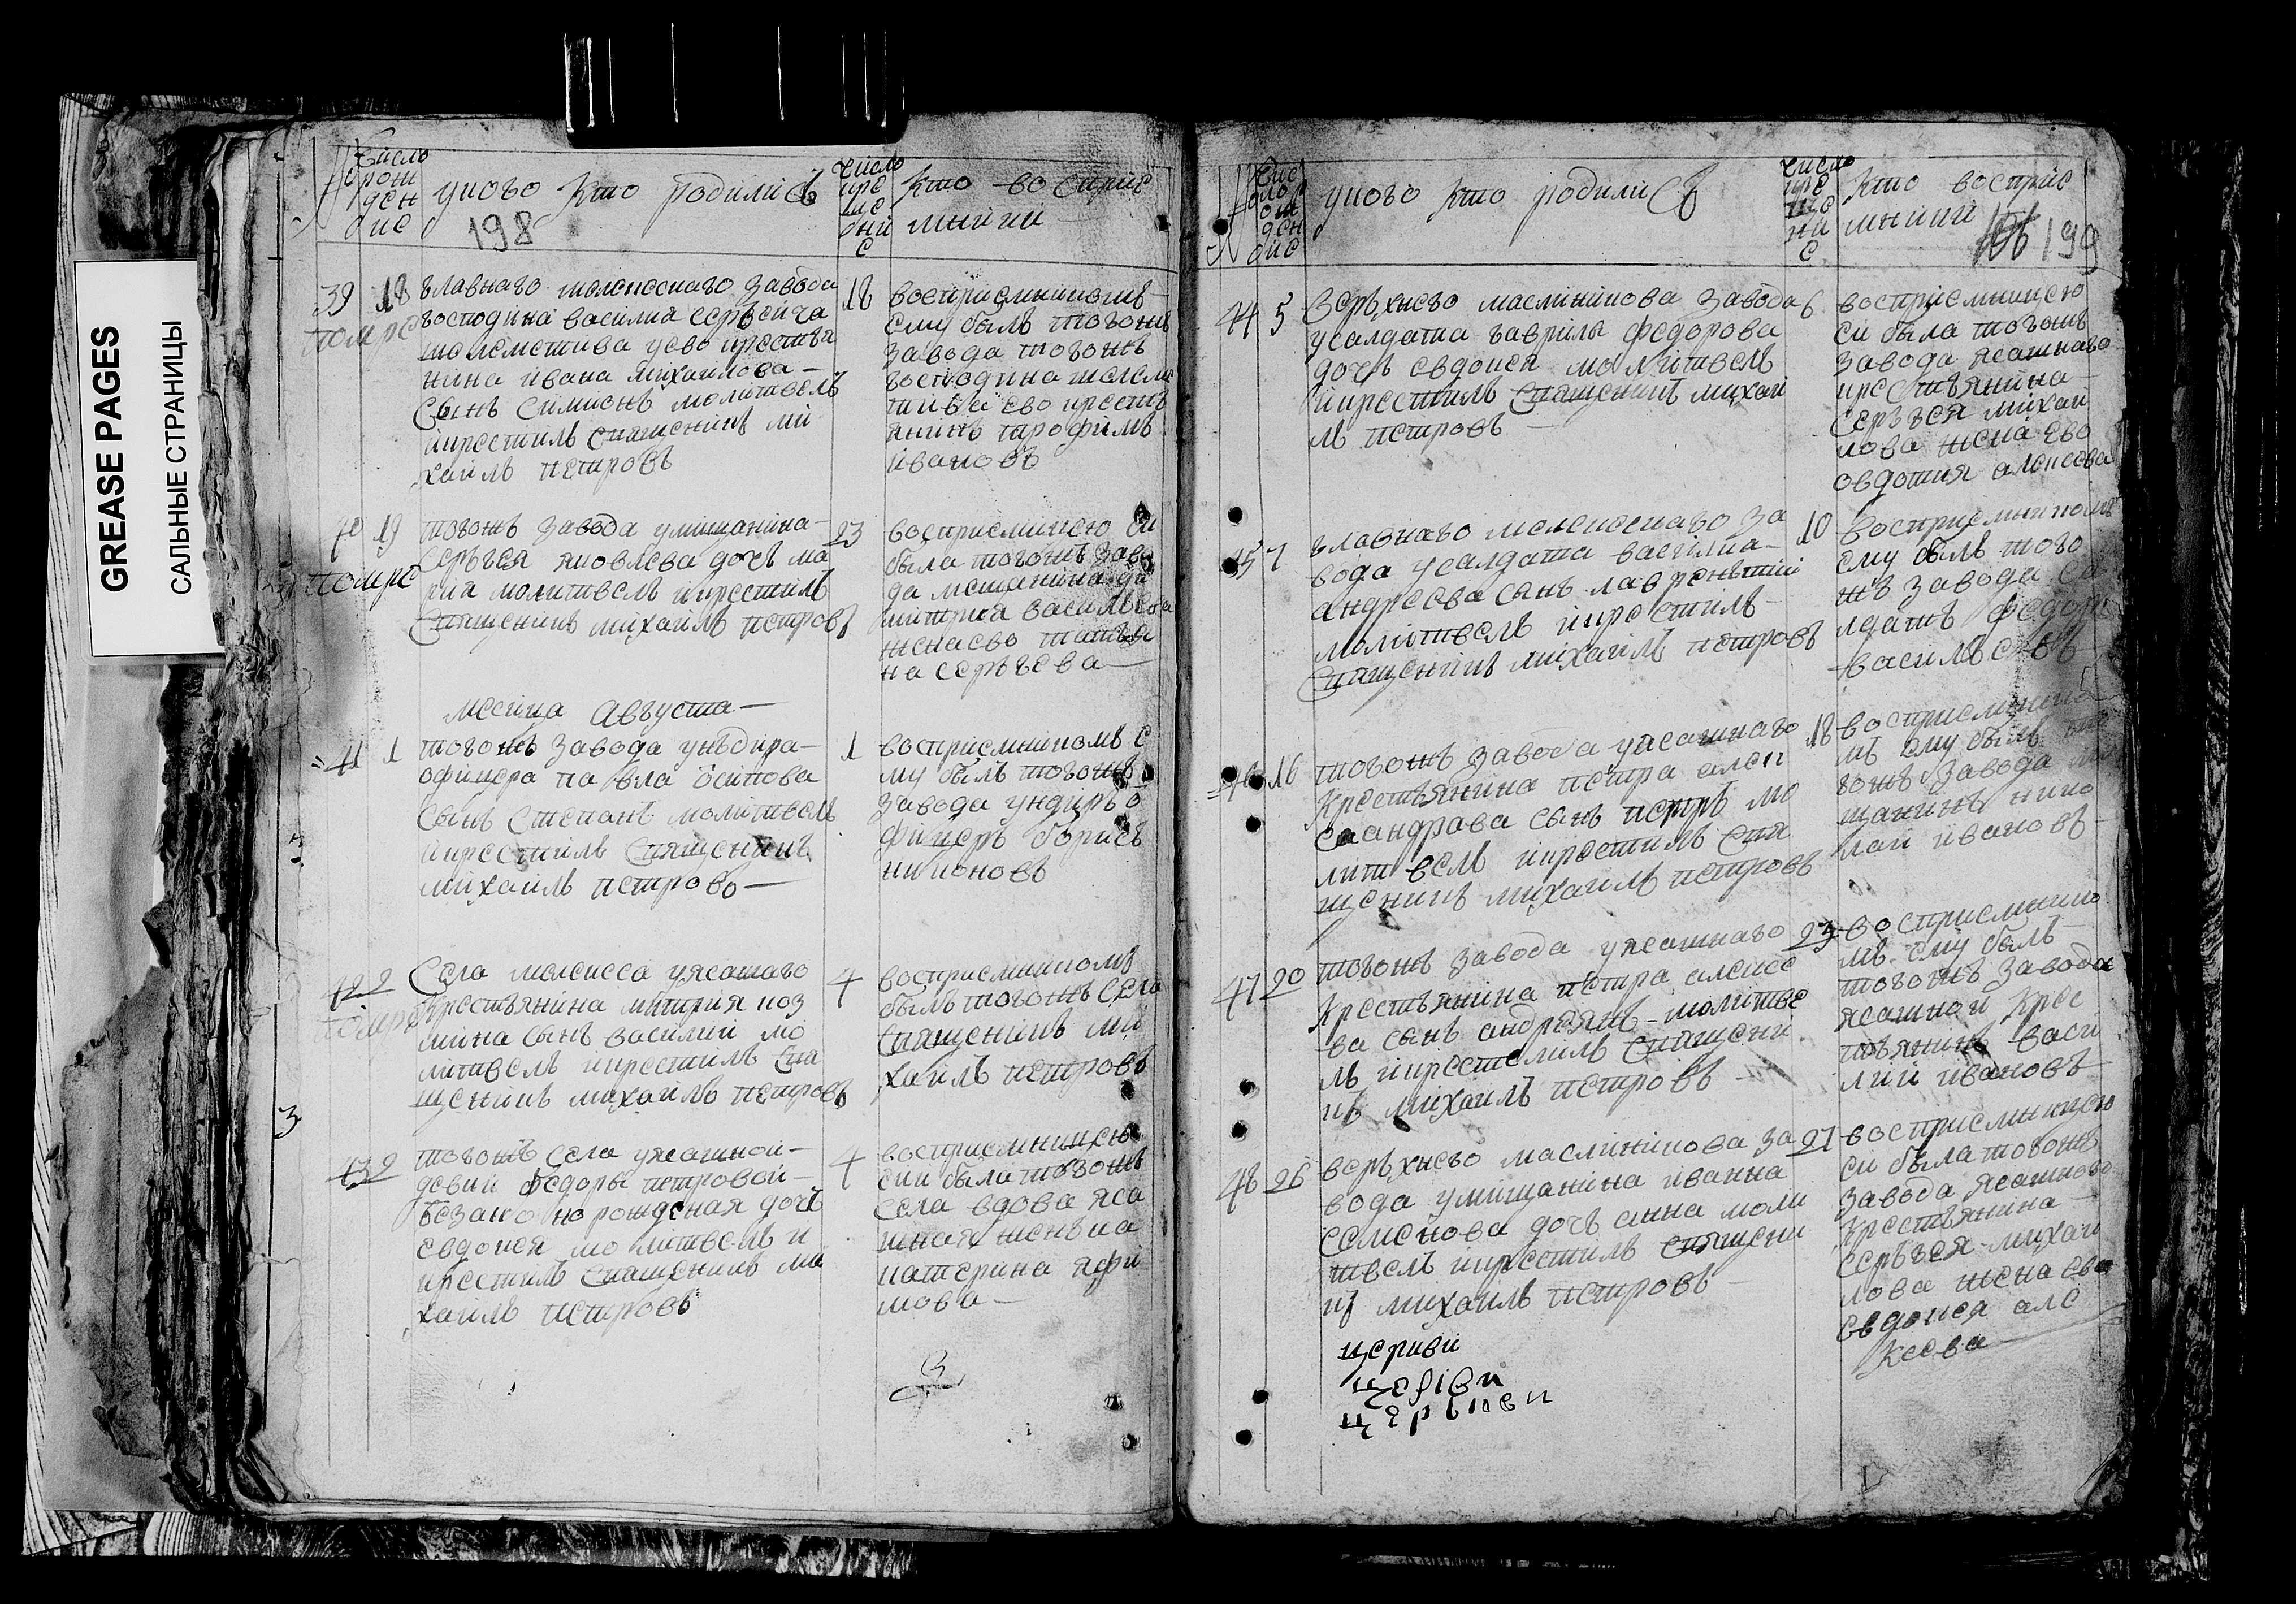 GREASE PAGES
САЛЬНЫЕ СТРАНИЦЫ
число рож ден ие
у кого кто родились
число кре ще ни е
кто восприе
мники
198
39 18
главнаго мелекескаго завода
господина василиа сергеича
у ево крестья
нина ивана михаилова
сынъ симионъ молитвелъ
икрестилъ священникъ ми
хаилъ петровъ
помре
18
восприемникомъ
ему былъ тогожъ
завода тогожъ
господина
ево крестъ
янинъ трофимъ
ивановъ
40 19
тогожъ завода умищанина
серъгея яковлева дочъ ма
рия молитвелъ икрестилъ
священникъ михаилъ петровъ
помре
23
восприемницею еи
была тогожъ заво
да мещанина ди
митрия василъева
жена ево татъя
на серъгева
месица августа
41 1
тогожъ завода унъдира
офицера павла осипова
сынъ степанъ молитвелъ
икрестилъ священникъ
михаилъ петрово
1
восприемникомъ е
му былъ тогожъ
завода ундиръ о
фицеръ борисъ
никоновъ
42 2
села мелекесса уясашнаго
крестьянина митрия коз
мина сынъ василий мо
литвелъ икрестилъ свя
щеникъ михаилъ петровъ
помре
4
восприемникомъ
былъ тогожъ села
священикъ ми
хаилъ петровъ
43 2
тогожъ села уясашной
девки федоры петровой
безаконо рожденая дочъ
евдокея молитвелъ и
крестилъ священикъ ми
хаилъ петровъ
4
восприемницею
еии была тогожъ
села вдова яса
шная женъка
катерина яфи
мова
3
число рож ден ие
у кого кто родились
число кре ще ни е
кто восприе
мники
199
44 5
Веръхнево маслиникова завода
усалдата гаврилы федорова
дочъ евдокея молитвелъ
икрестилъ священикъ михаи
лъ петровъ
6
восприемницею
еи была тогожъ
завода ясашнаго
крестъянина
серъгея михаи
лова жена ево
овдотия алексева
45 7
главнаго мелекескаго за
вода усалдата василиа
андреева сынъ лавренътий
молитвелъ икрестилъ
священикъ михаилъ петровъ
10
восприемникомъ
ему былъ того
жъ завода са
лдатъ федоръ
василъевъ
46 16
тогожъ завода уясашнаго
крестьянина петра алек
саандрава сынъ петръ мо
литвелъ икрестилъ свя
щеникъ михаилъ петровъ
18
восприемнико
мъ ему былъ то
гожъ завода ме
щанинъ нико
лаи ивановъ
47 20
тогожъ завода уясашнаго
крестьянина петра алексе
ва сынъ андреянъ молитве
лъ икрестилъ священи
къ михаилъ петровъ
23
восприемнико
мъ ему былъ
тогожъ завода
ясашной крес
тъянинъ васи
лии ивановъ
48 26
веръхнево маслиникова за
вода умищанина иванна
семенова дочъ анна моли
твелъ икрестилъ священи
къ михаилъ петровъ
27
восприемницею
еи была тогожъ
завода ясашново
крестьянина
серъгея михаи
лова жена ево
евдокея але
ксева
церкви
церкви
церькви